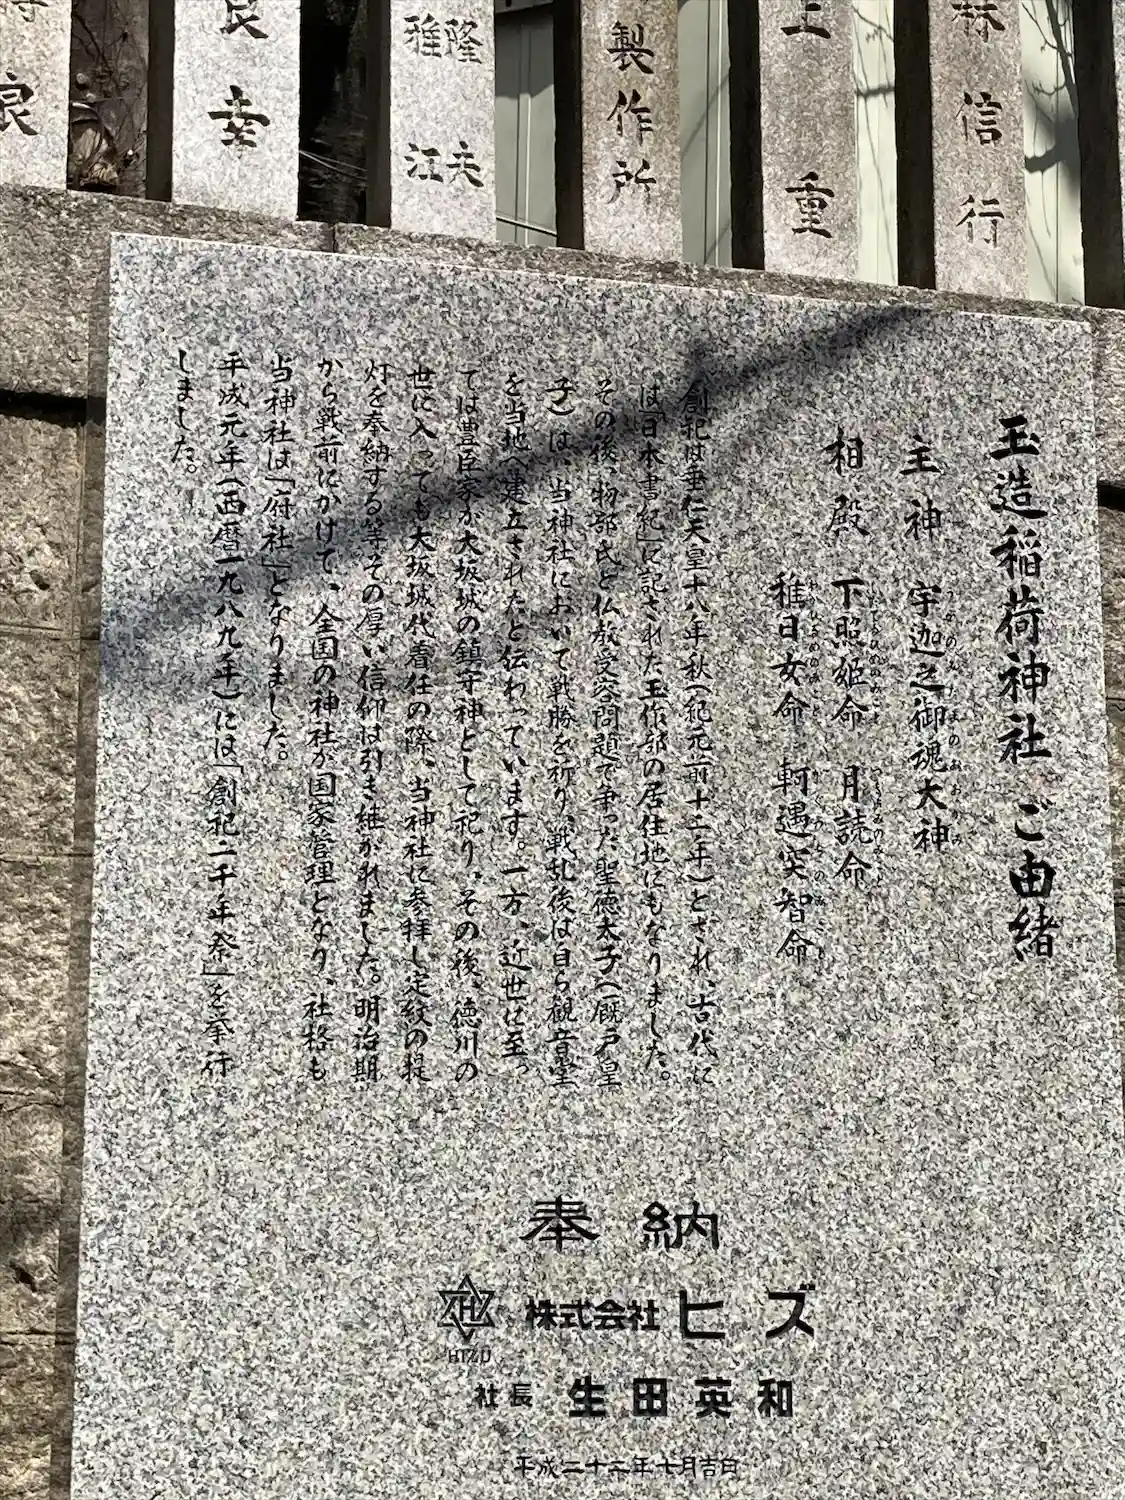 林信行
上重
製作所
隆夫
雅江
良幸
良
玉造稲荷神社 ご由緒
主神 宇迦之御魂大神
相殿 下照姫命 月読命
稚日女命 軻遇突智命
創祀は垂仁天皇十八年秋(紀元前十二年)とされ、古代に
は「日本書紀」に記された玉作部の居住地にもなりました。
その後、物部氏と仏教受容問題で争った聖徳太子(厩戸皇
子)は、当神社において戦勝を祈り、戦乱後は自ら観音堂
を当地へ建立されたと伝わっています。一方、近世に至っ
ては豊臣家が大坂城の鎮守神として祀り、その後、徳川の
世に入っても大坂城代着任の際、当神社に参拝し定紋の提
灯を奉納する等その厚い信仰は引き継がれました。明治期
から戦前にかけて、全国の神社が国家管理となり、社格も
当神社は「府社」となりました。
平成元年(西暦一九八九年)には「創祀二千年祭」を挙行
しました。
奉納
HIZU 株式会社 ヒズ
社長 生田英和
平成二十二年七月吉日